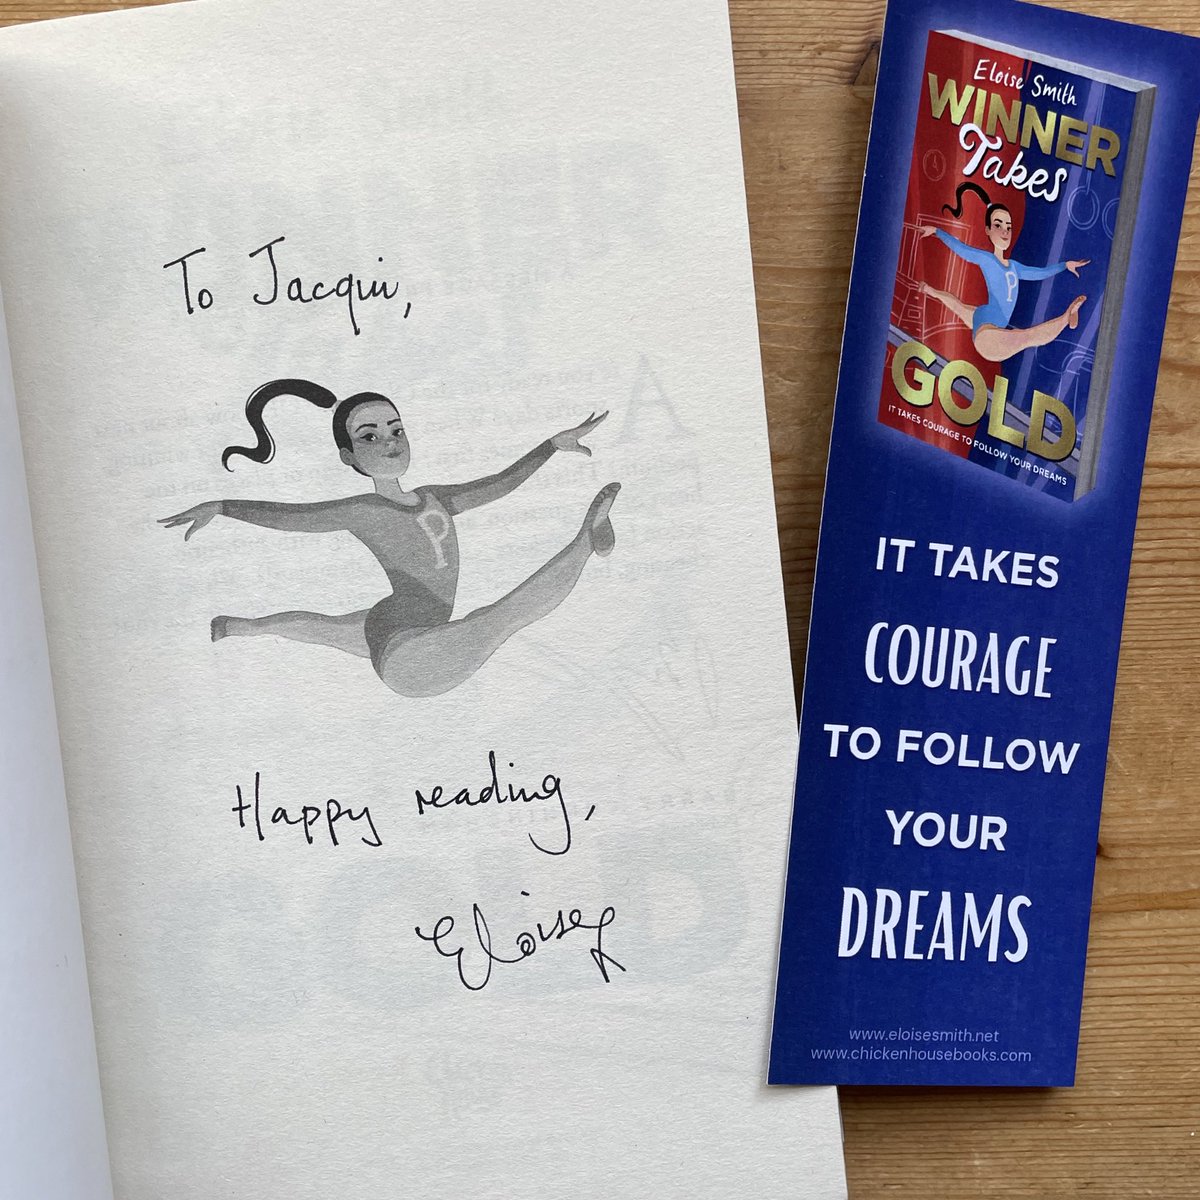 To Jacqui,
P
Happy reading,
Eloise
Eloise Smith
WINNER
Takes
P
GOLD
IT TAKES COURAGE TO FOLLOW YOUR DREAMS
IT TAKES
COURAGE
TO FOLLOW
YOUR
DREAMS
www.eloisesmith.net
www.chickenhousebooks.com